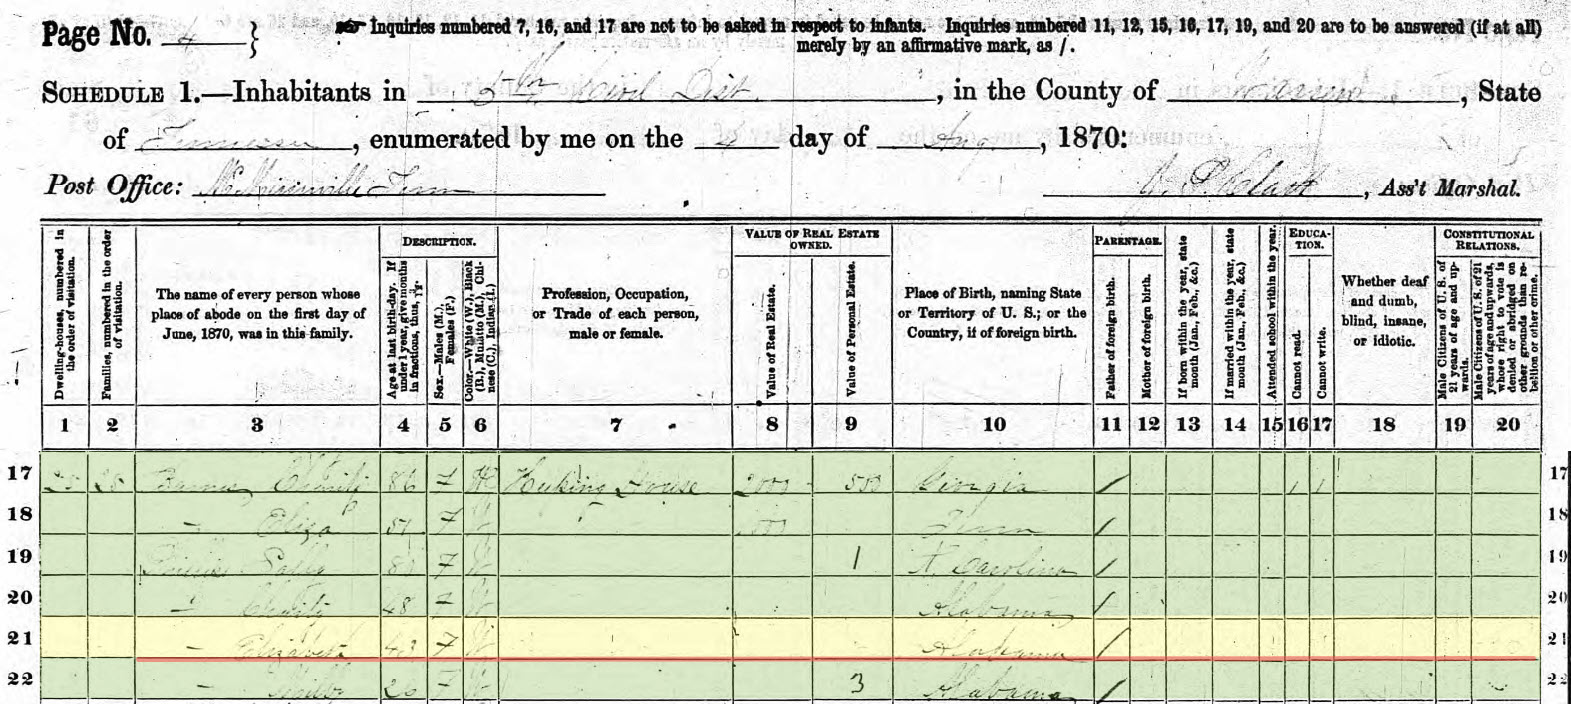 Page No. 4 } Inquiries numbered 7, 16, and 17 are not to be asked in respect to infants. Inquiries numbered 11, 12, 15, 16, 17, 19, and 20 are to be answered (if at all)
merely by an affirmative mark, as /.
SCHEDULE 1.—Inhabitants in 5th Civil Dist., in the County of Warren, State
of Tennessee, enumerated by me on the day of Aug, 1870.
Post Office: McMinnville Tenn P. Clark, Ass't Marshal.
Dwelling-houses, numbered in the order of visitation.
Families, numbered in the order of visitation.
The name of every person whose place of abode on the first day of June, 1870, was in this family.
DESCRIPTION.
Age at last birth-day. If under 1 year, give months in fractions, thus,
Sex.—Males (M.), Females (F.)
Color.—White (W.), Black (B.), Mulatto (M.), Chinese (C.), Indian (I.)
Profession, Occupation, or Trade of each person, male or female.
VALUE OF REAL ESTATE OWNED.
Value of Real Estate.
Value of Personal Estate.
Place of Birth, naming State or Territory of U. S.; or the Country, if of foreign birth.
PARENTAGE.
Father of foreign birth.
Mother of foreign birth.
If born within the year, state month (Jan., Feb., &c.)
If married within the year, state month (Jan., Feb., &c.)
Attended school within the year.
EDUCATION.
Cannot read.
Cannot write.
Whether deaf and dumb, blind, insane, or idiotic.
CONSTITUTIONAL RELATIONS.
Male Citizens of U. S. of 21 years of age and upwards.
Male Citizens of U. S. of 21 years of age and upwards, whose right to vote is denied or abridged on other grounds than rebellion or other crime.
1 2 3 4 5 6 7 8 9 10 11 12 13 14 15 16 17 18 19 20
17 28 28 Charity 86 F W Keeping House 2000 500 Georgia / / / 17
18 – Eliza 51 F W Tenn / 18
19 Sally F W 1 N. Carolina / 19
20 – Charity 48 F W Alabama / 20
21 – Elizabeth 43 F W Alabama / 21
22 – 26 F W 3 Alabama / 22